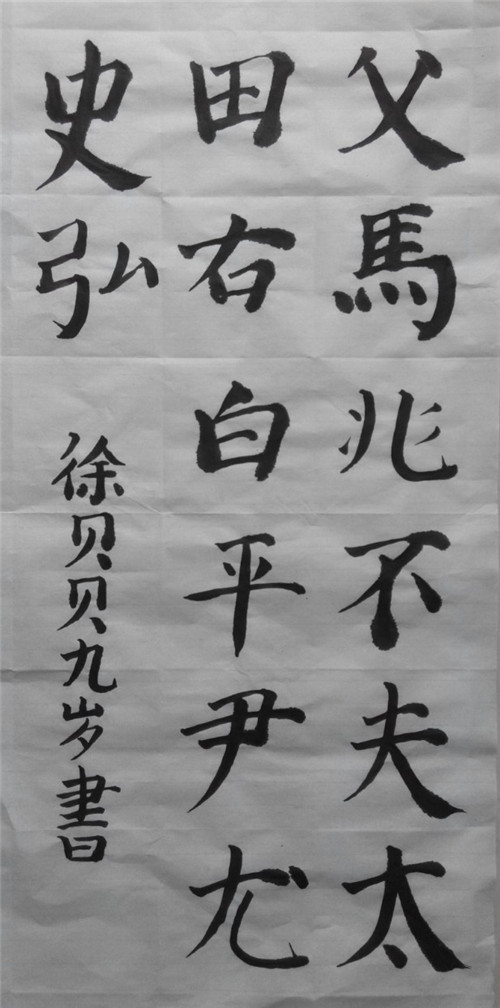 父馬兆不夫太
田右白平尹尤
史弘
徐贝贝九岁書